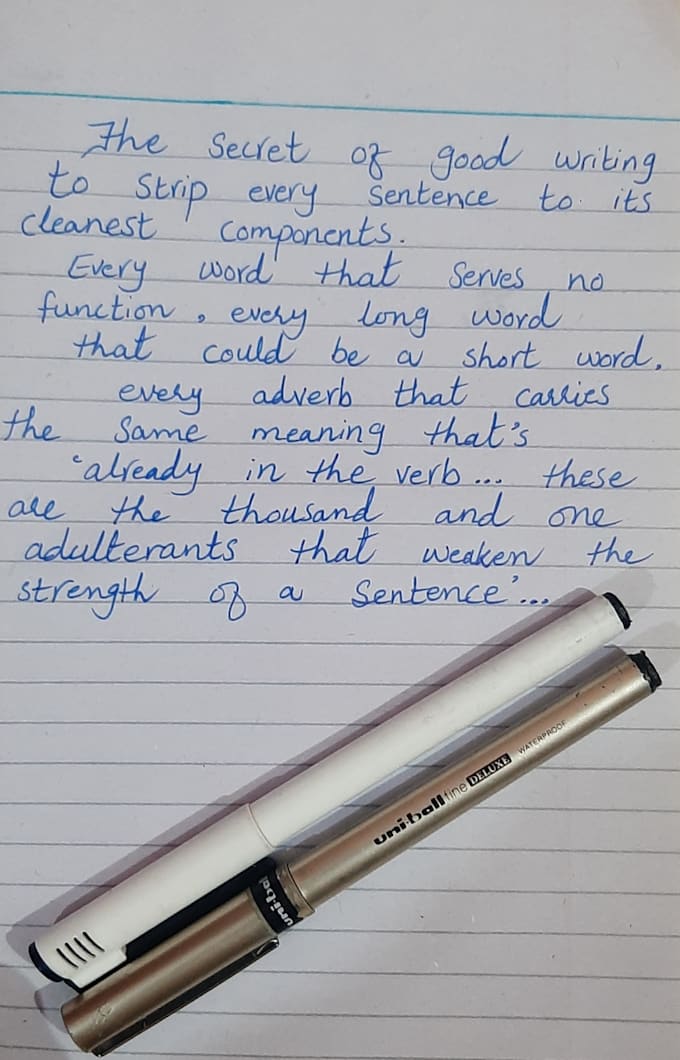 The Secret of good writing
to strip every sentence to its
cleanest components.
Every word that serves no
function, every long word
that could be a short word.
every adverb that carries
the same meaning that's
'already in the verb... these
are the thousand and one
adulterants that weaken the
strength of a sentence'...
uni-ball fine DELUXE WATERPROOF